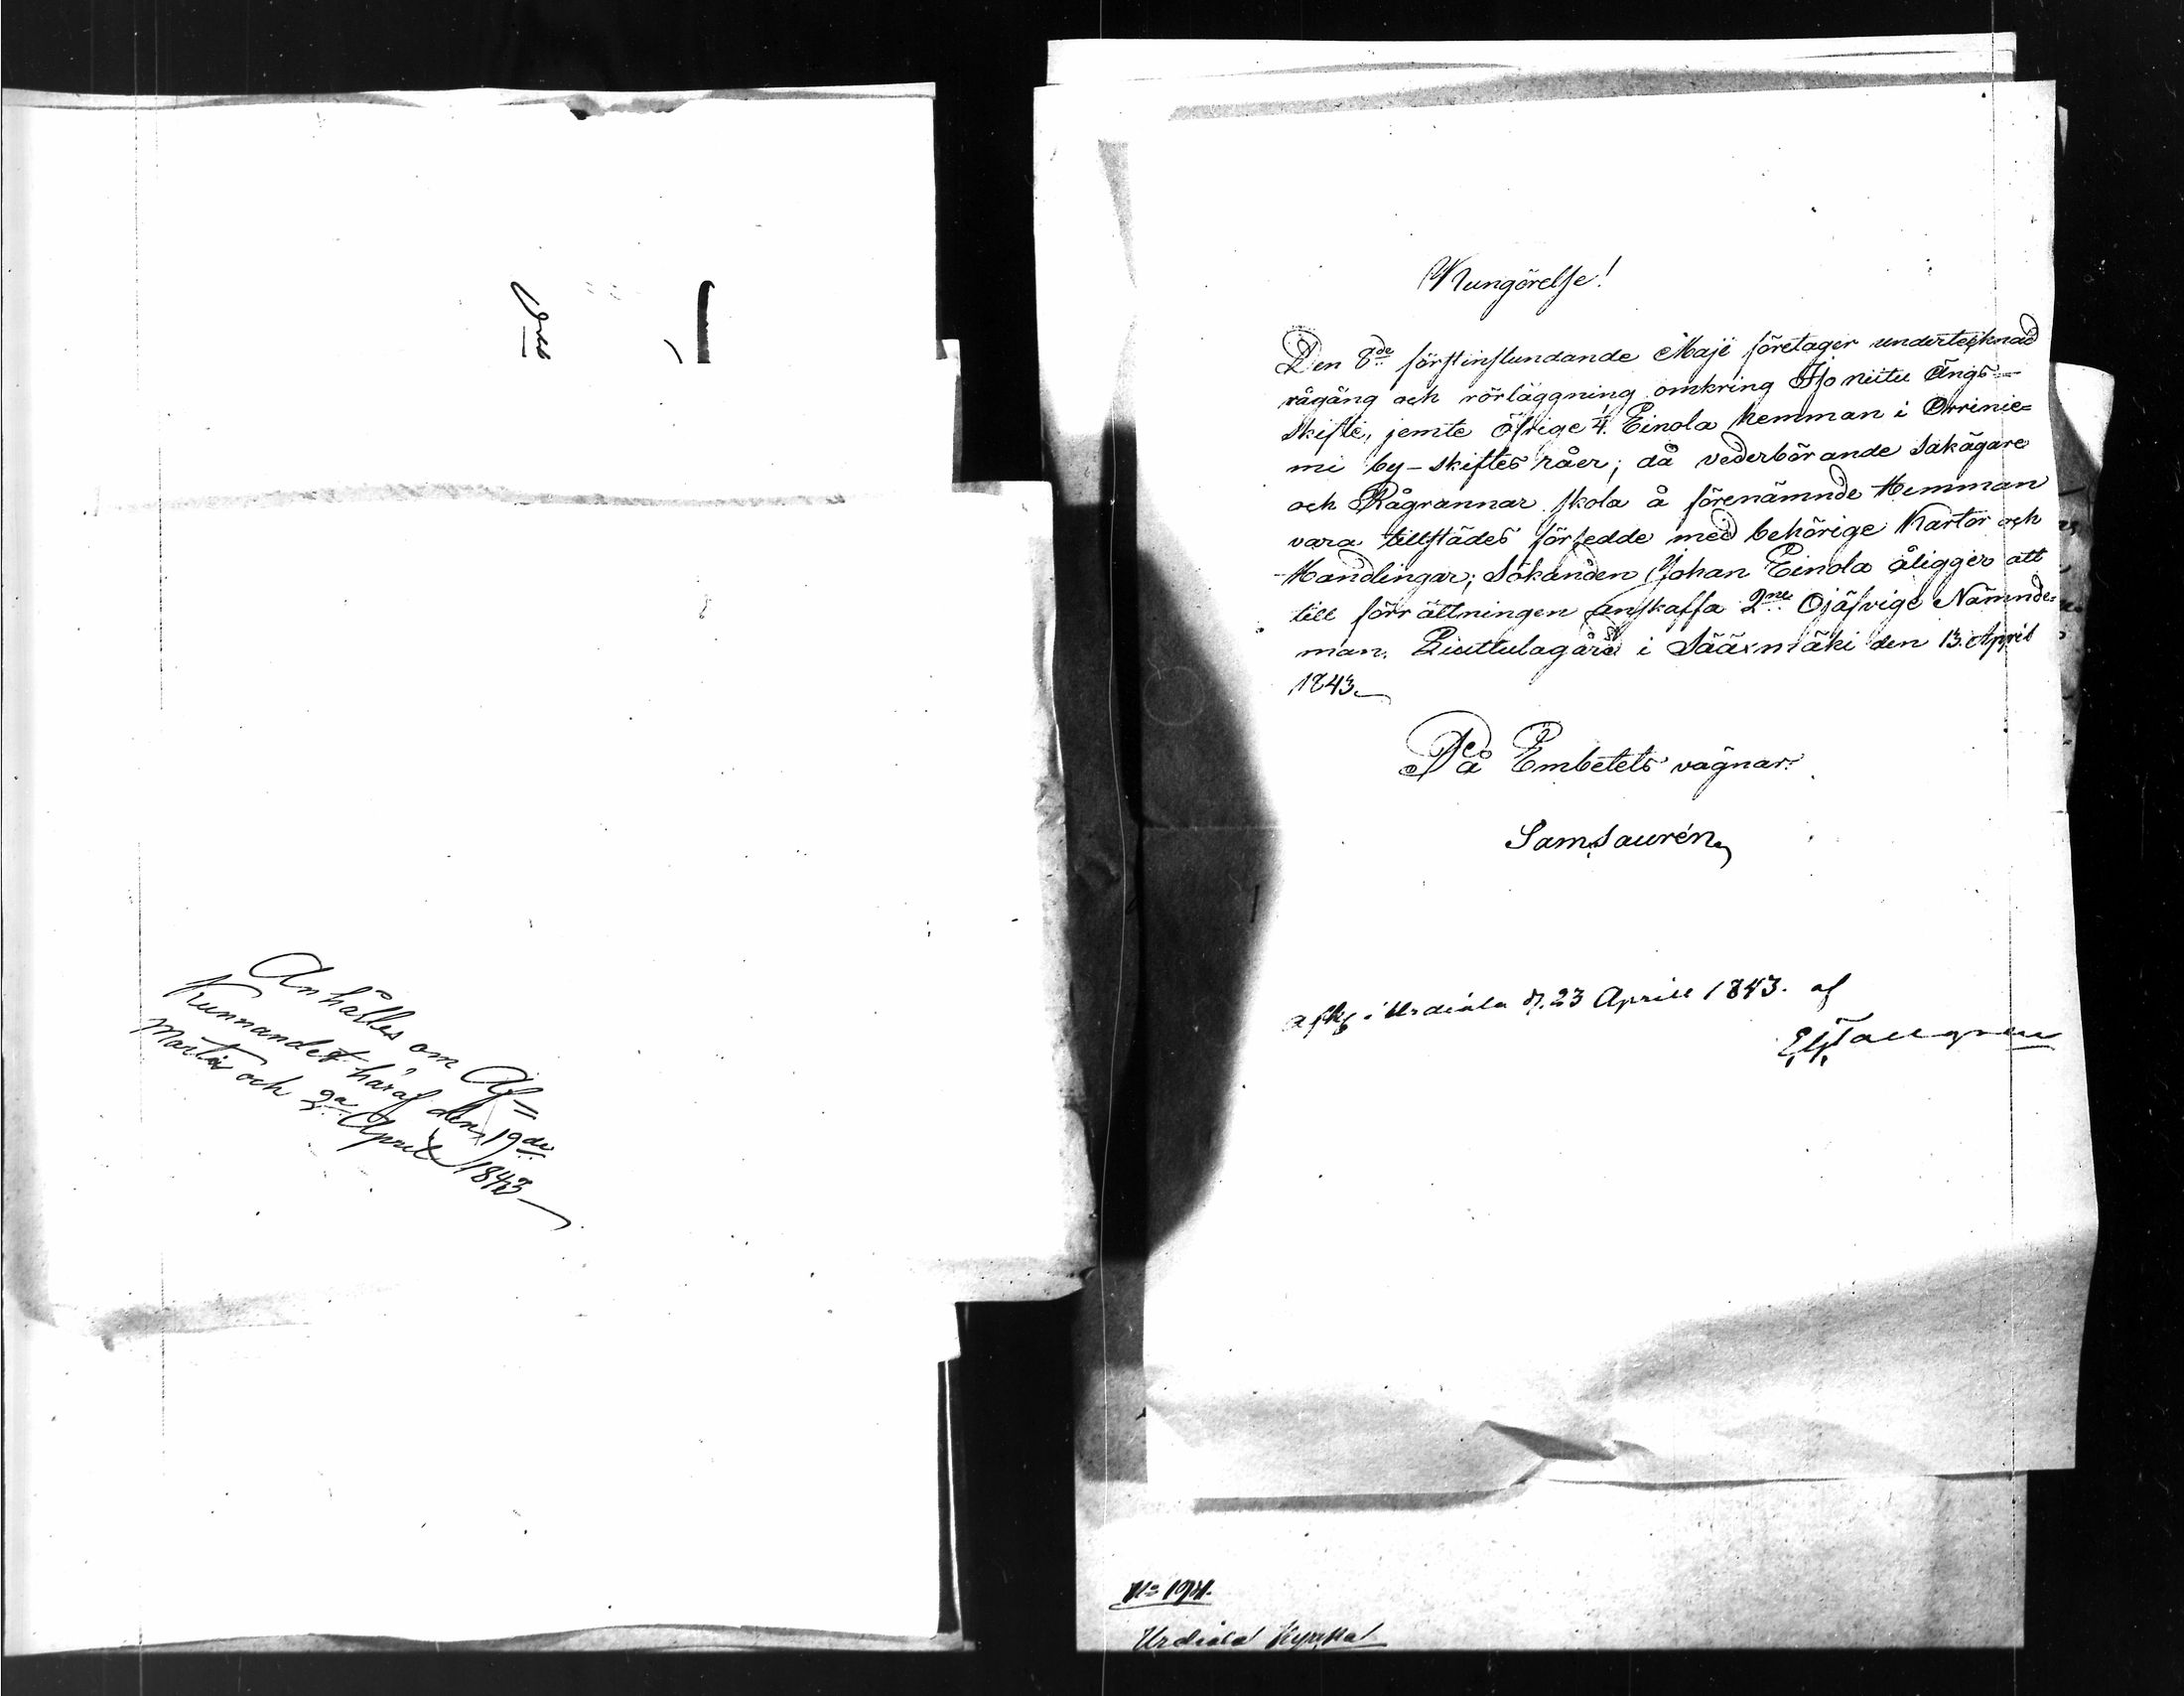 Anhålles om Af=
Kunnandet häraf den 19de
Martii och 2a April 1843
Kungörelse!
Den 8de förstinstundande Maji företager undertecknad
rågång och rörläggning omkring Iso niitu Ängs-
skifte, jemte öfrige 1/4. Einola hemman i Orrinie=
mi by-skiftes råer; då vederbörande sakägare
och Rågrannar skola å förenämnde Hemman
vara tillstädes försedde med behörige Kartor och
Handlingar; Sökanden Johan Einola åligger att
till förrättningen anskaffa 2ne Ojäfvige Nämnde=
man. Liuttulagård i Sääxmäki den 13. April
1843
På Embetets vägnar
Sam Saurén
i Urdiala d. 23 Aprill 1843. af
Urdiala Kyrka